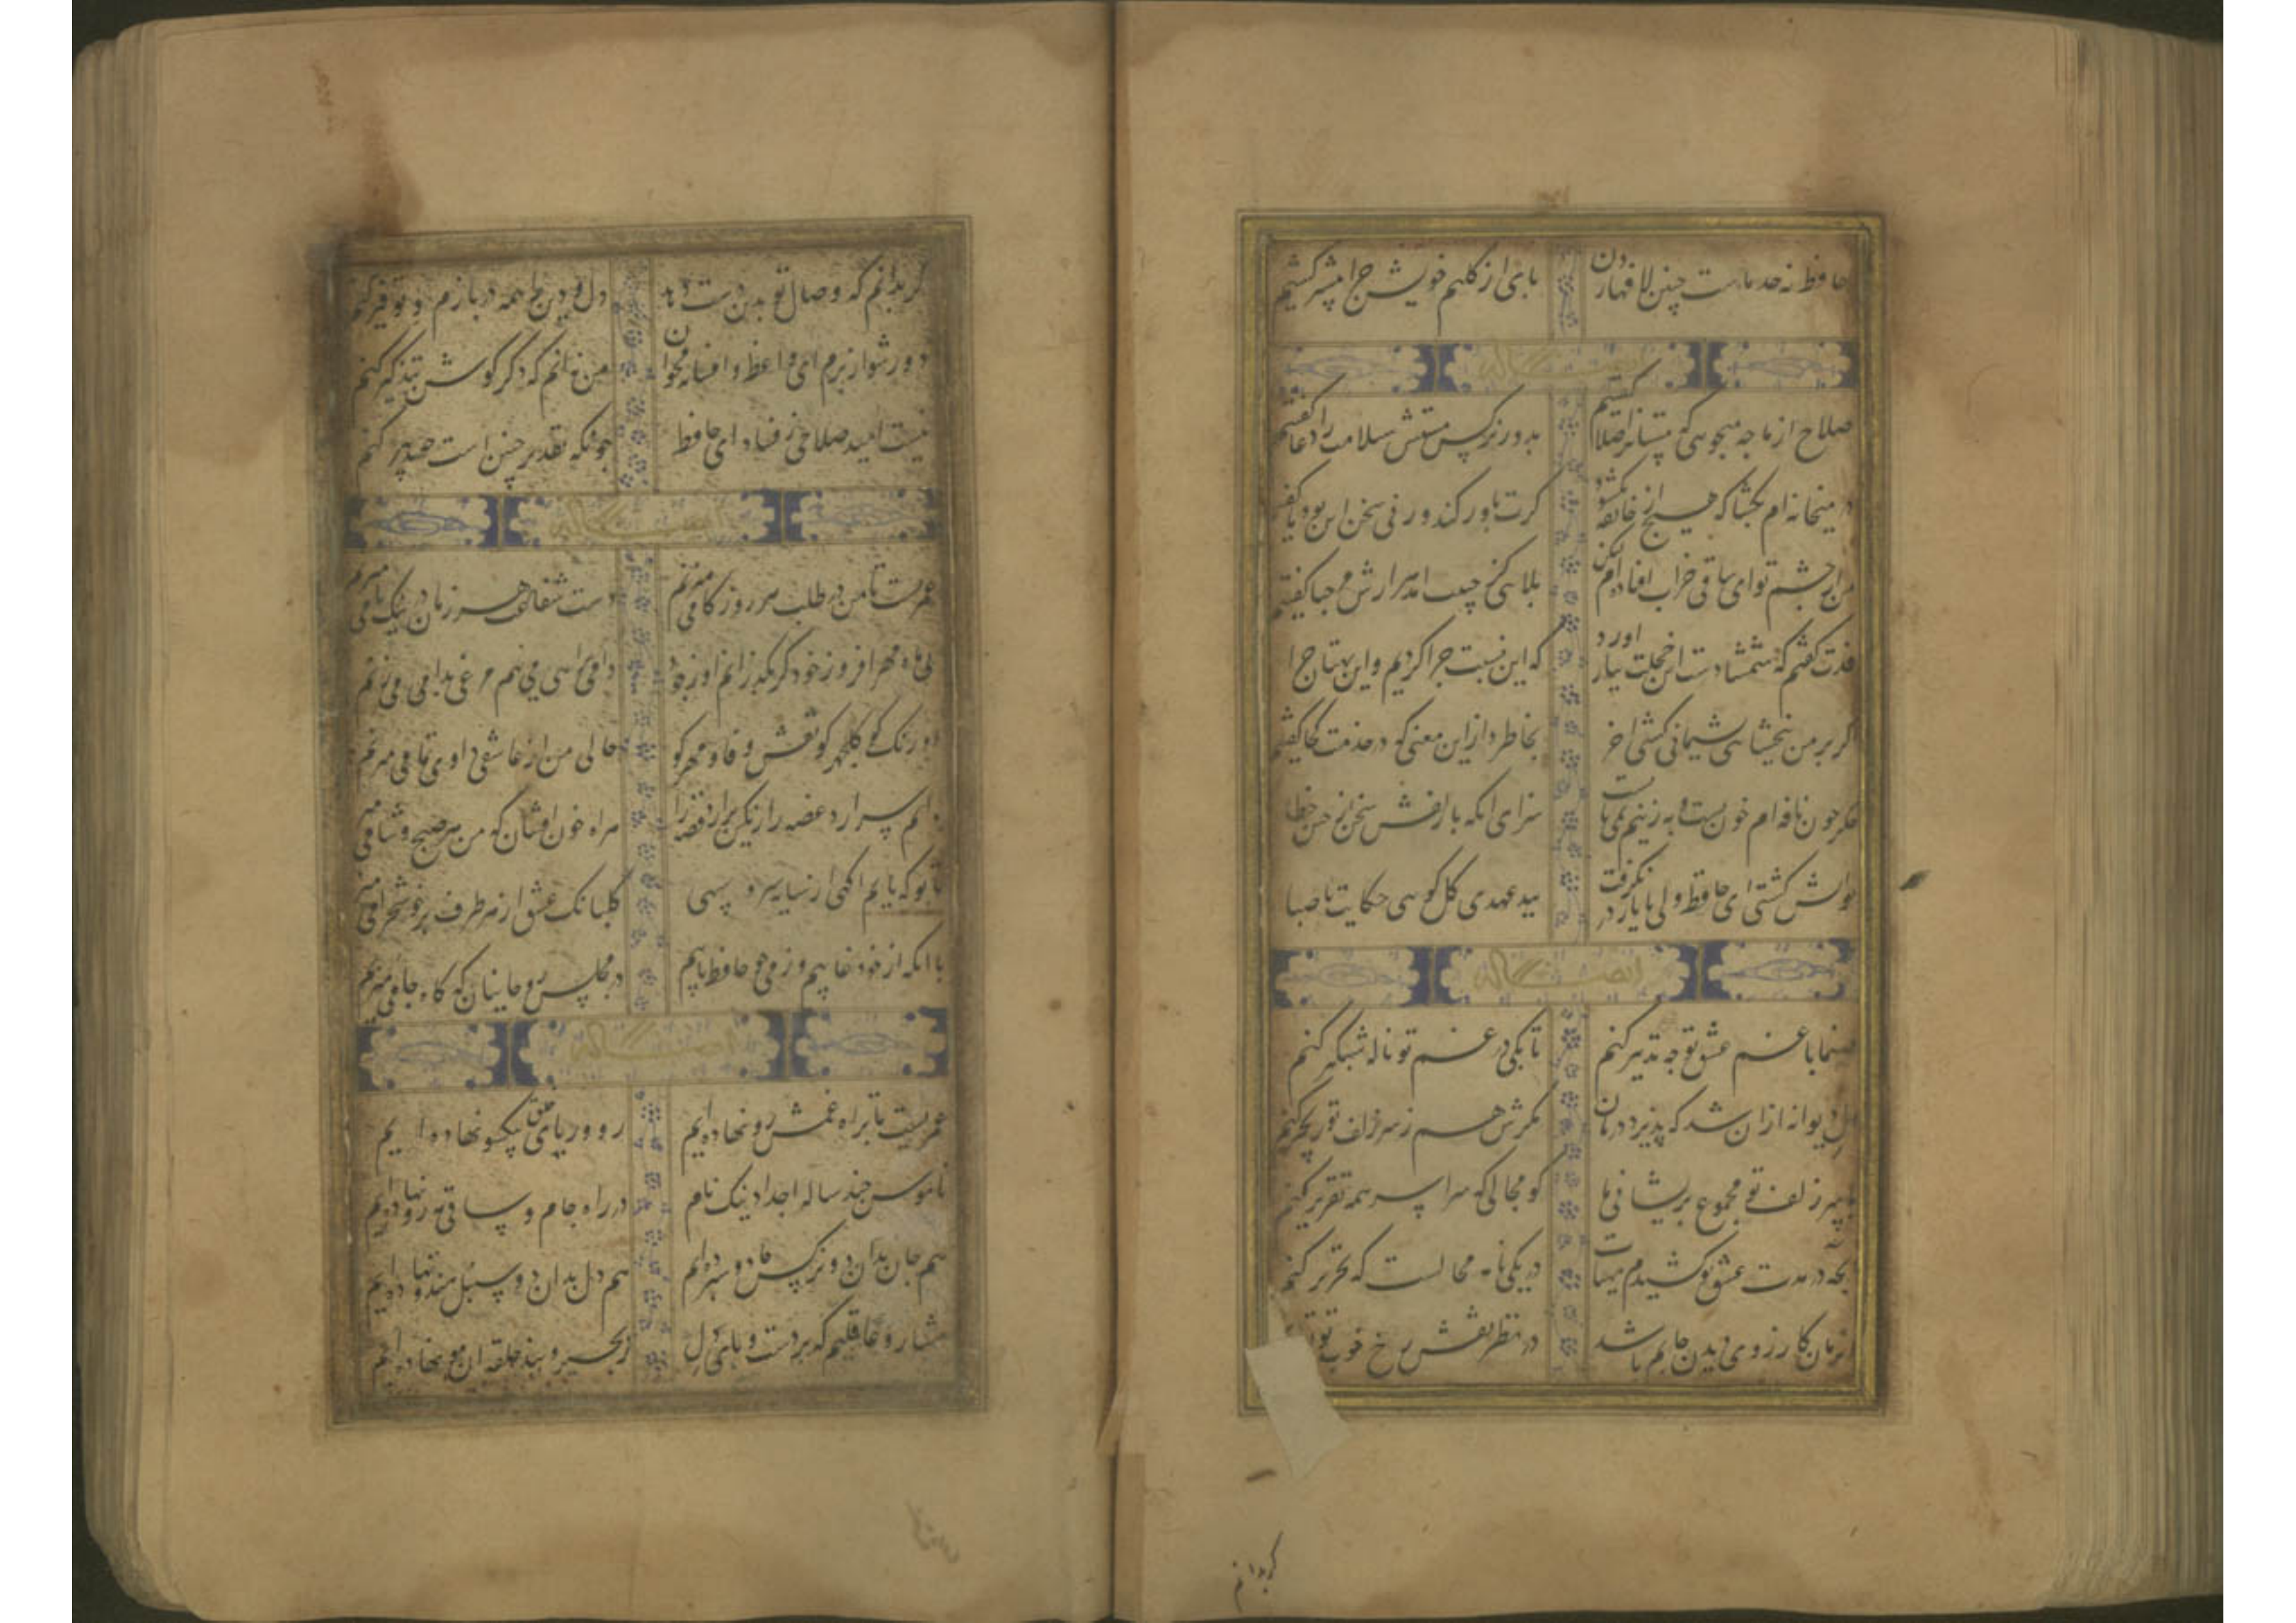 حافظ نه حد ماست چنین لافها زدن بای از کلیم خویش جرا بیشتر کشیم
ایضا له
صلاح از ما جه میجویی که مستانرا صلا کفتیم بدور نرکس مستش سلامت را دعا کفتیم
در میخانه ام بکشا که هیچ از خانقه نکشود کرت باور کند ور نی سخن این بود و ما کفتیم
من از جشم تو ای ساقی خراب افتاده ام لیکن بلایی کز حبیب آمد هزارش مرحبا کفتیم
قدت کفتم که شمشادست بس خجلت ببار اورد که این نسبت جرا کردیم و این بهتان جرا
کر بر من نبخشایی بشیمانی کشی اخر بخاطر دار این معنی که در خدمت کجا کفتیم
جکر جون نافه ام خون کشت به زینم نمی بایست سزای انکه با زلفش سخن از جین خطا
تو اتش کشتی ای حافظ ولی با یار در نکرفت ز بد عهدی کل کویی حکایت با صبا
ایضا له
صنما با غم عشق تو جه تدبیر کنم تا بکی در غم تو ناله شبکیر کنم
دل دیوانه ازان شد که پذیرد درمان مکرش هم ز سر زلف تو زنجیر کنم
با سر زلف تو مجموع بریشانی ما کو مجالی که سراسر همه تقریر کنم
انجه در مدت عشق تو کشیدم هیهات در یکی نامه محالست که تحریر کنم
انزمان کارزوی دیدن جانم باشد در نظر نقش رخ خوب تو
کر بدانم
کر بدانم که وصال تو بدین دست دهد دل و دین را همه در بازم و توفیر کنم
دور شو از برم ای واعظ و افسانه مخوان من نه انم که دکر کوش بتذکیر کنم
نیست امید صلاحی ز فساد ای حافظ جونکه تقدیر چنین است چه تدبیر کنم
ایضا له
عمریست تا من در طلب هر روز کامی میزنم دست شفاعت هر زمان در نیک نامی میزنم
بی ماه مهر افروز خود تا بکذرانم روز خود دامی براهی می نهم مرغی بدامی می زنم
اورنک کو کلچهر کو نقش وفا و مهر کو حالی من اندر عاشقی داو تمامی میزنم
دانم سر ارد غصه را رنکین بر ارد قصه را این اه خون افشان که من هر صبح و شامی میزنم
تا بو که یابم اکهی از سایه سرو سهی کلبانک عشق از هر طرف بر خوش خرامی میزنم
با انکه از خود غایبم وز می جو حافظ تایبم در مجلس روحانیان که کاه جامی میزنم
ایضا له
عمریست تا براه غمش رو نهاده ایم رو و ریای خلق بیکسو نهاده ایم
ناموس چند ساله اجداد نیک نام در راه جام و ساقی مه رو نهاده ایم
هم جان بدان دو نرکس جادو سپرده ایم هم دل بدان دو سنبل هندو نهاده ایم
هشیار و عاقلیم که بر دست و بای دل زنجیر و بند حلقه ان مو نهاده ایم